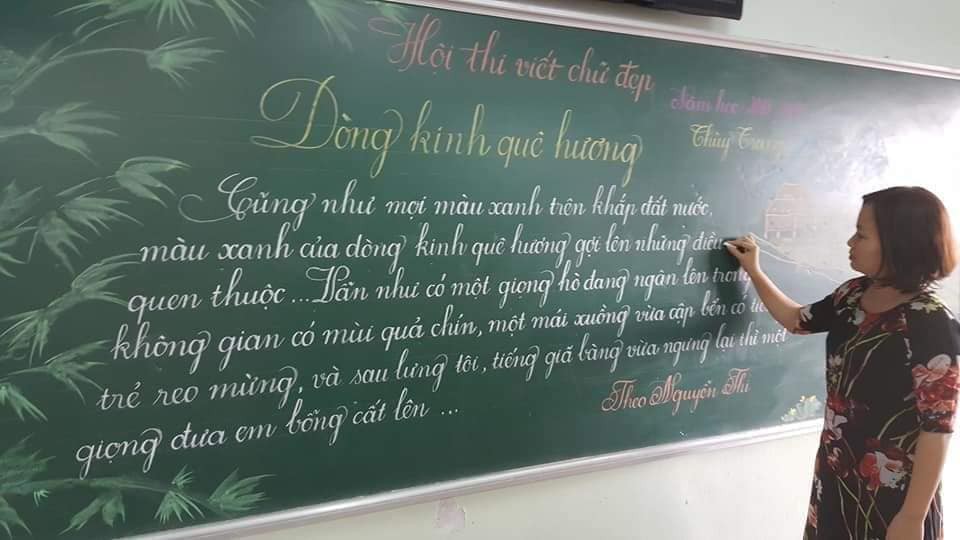 Hội thi viết chữ đẹp
Năm học
Dòng kinh quê hương
Thùy
Cũng như mọi màu xanh trên khắp đất nước,
màu xanh của dòng kinh quê hương gợi lên những điều
quen thuộc...Vẫn như có một giọng hò đang ngân lên trong
không gian có mùi quả chín, một mái xuồng vừa cập bến có
trẻ reo mừng, và sau lưng tôi, tiếng giã bàng vừa ngưng lại thì một
giọng đưa em bỗng cất lên ...
Theo Nguyễn Thi